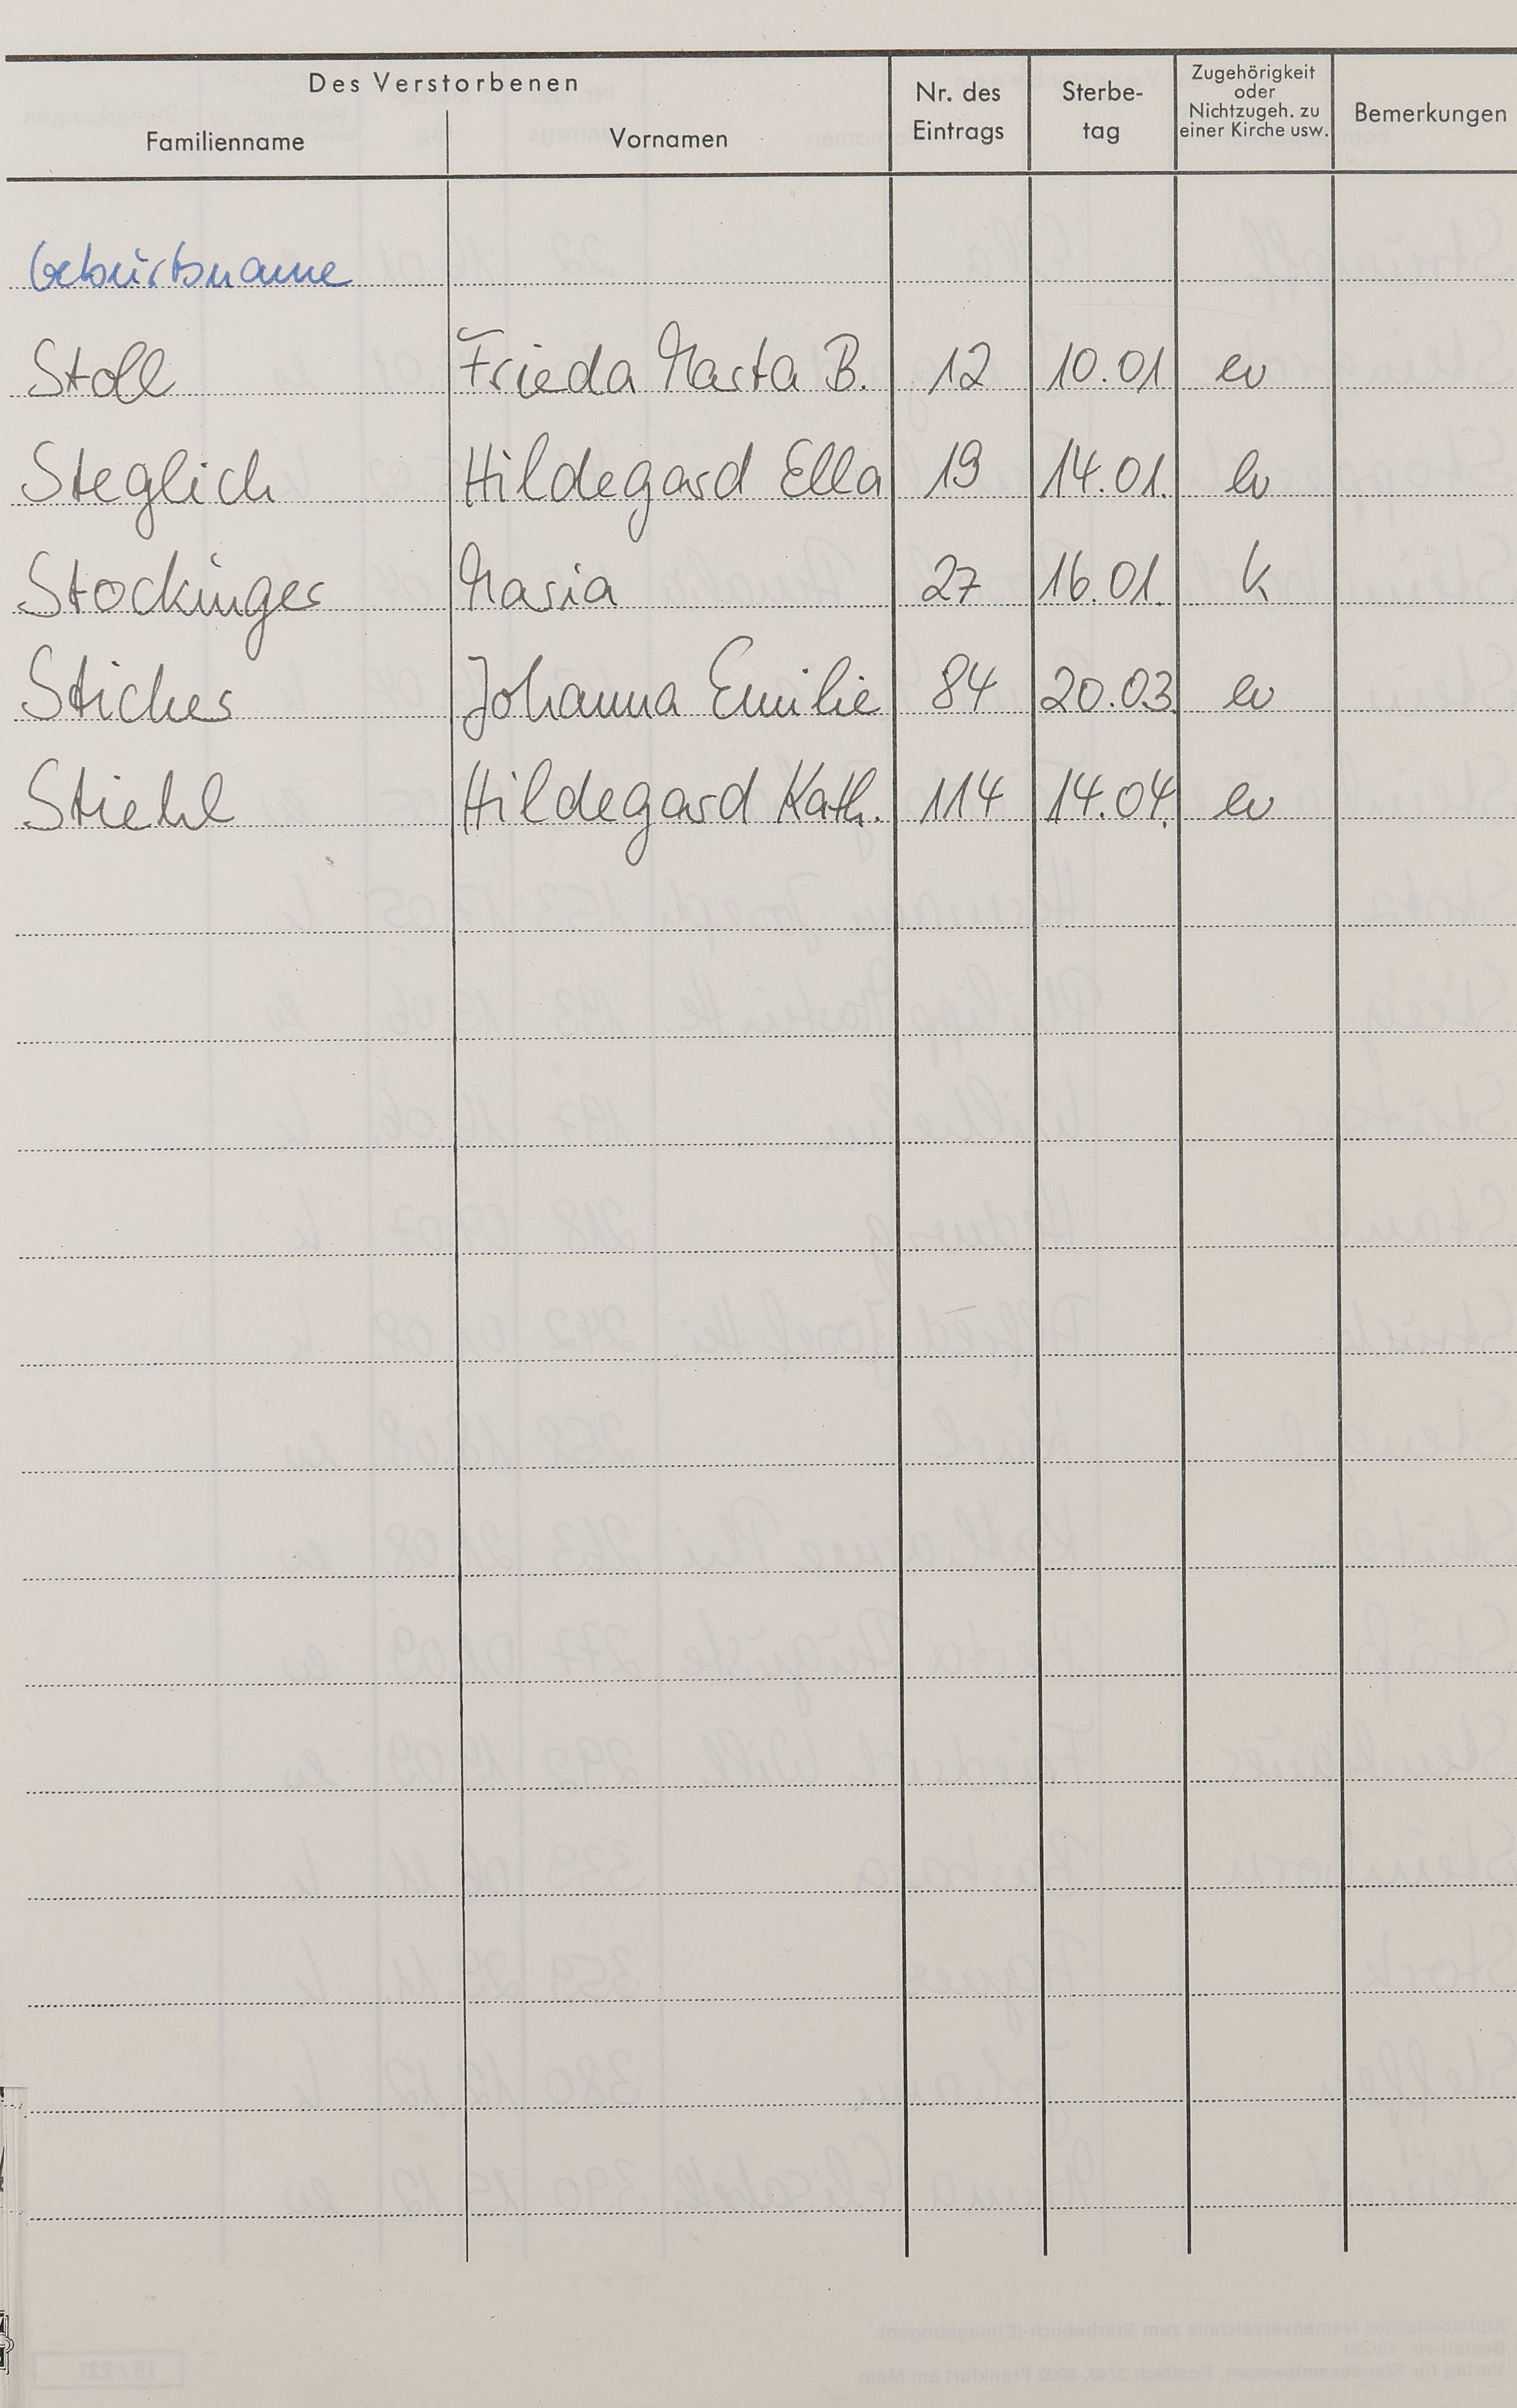 Des Verstorbenen
Familienname Vornamen Nr. des Eintrags Sterbe-tag Zugehörigkeit oder Nichtzugeh. zu einer Kirche usw. Bemerkungen
Geburtsname
Stoll Frieda Marta B. 12 10.01 ev
Steglich Hildegard Ella 19 14.01. ev
Stockinger Maria 27 16.01. k
Sticher Johanna Emilie 84 20.03. ev
Stiehl Hildegard Kath. 114 14.04. ev